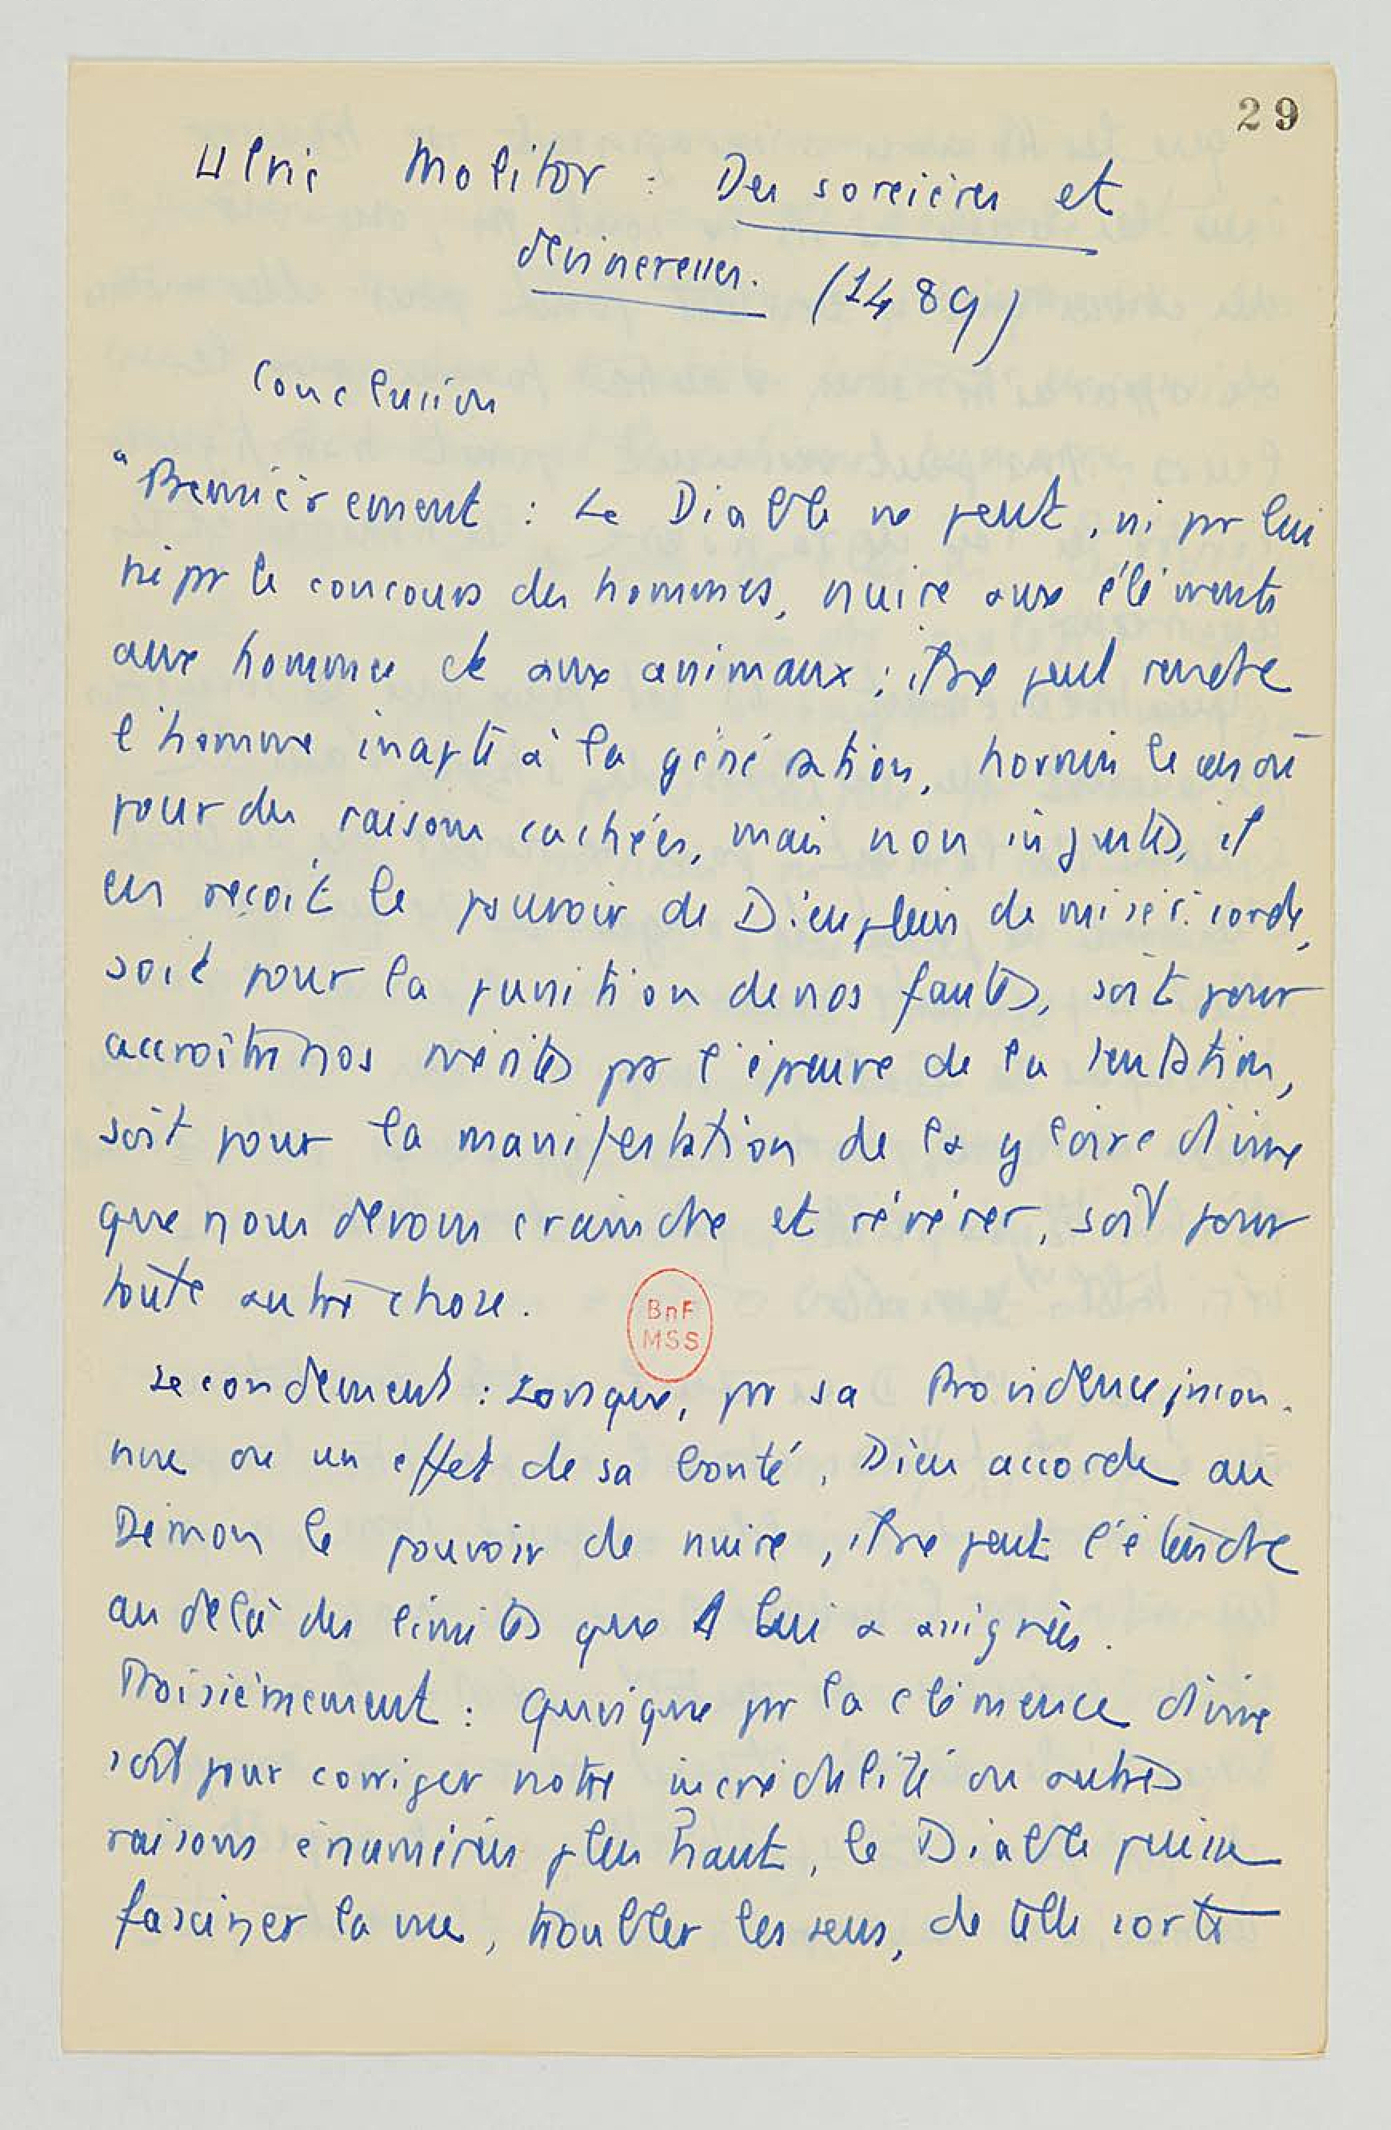 29
Ulric Molitor : Des sorcières et
devineresses. (1489)
Conclusion
"Premièrement : Le Diable ne peut, ni pr lui
ni pr le concours des hommes, nuire aux éléments
aux hommes et aux animaux ; il ne peut rendre
l'homme inapte à la génération, hormis le cas où
pour des raisons cachées, mais non injustes, il
en reçoit le pouvoir de Dieu plein de miséricorde,
soit pour la punition de nos fautes, soit pour
accroître nos mérites pr l'épreuve de la tentation,
soit pour la manifestation de la gloire divine
que nous devons craindre et révérer, soit pour
toute autre chose.
BnF
MSS
Secondement : Lorsque, pr sa Providence incon-
nue ou un effet de sa bonté, Dieu accorde au
Démon le pouvoir de nuire, il ne peut l'étendre
au delà des limites que Il lui a assignées.
Troisièmement : Quoique pr la clémence divine
soit pour corriger notre incrédulité ou autres
raisons énumérées plus haut, le Diable puisse
fasciner la vue, troubler les sens, de telle sorte